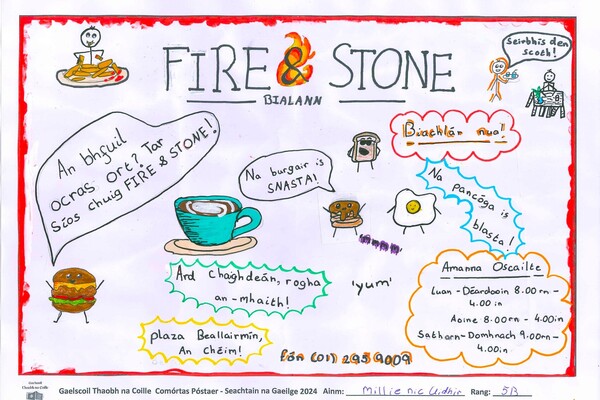 FIRE & STONE
BIALANN
Seirbhís den
scoth!
An bhfuil
ocras ort? Tar
Síos chuig FIRE & STONE!
Na burgair is
SNASTA!
Biachlán nua!
Na pancóga is
blasta!
Ard chaighdeán, rogha
an-mhaith!
'yum'
Amanna Oscailte
Luan - Déardaoin 8.00rn -
4.00in
Aoine 8.00rn - 4.00in
Satharn-Domhnach 9.00rn-
4.00in
plaza Beallairmín,
An Chéim!
Fón (01) 295 9009
Gaelscoil Thaobh na Coille Comórtas Póstaer - Seachtain na Gaeilge 2024 Ainm: Millie nic Uidhir Rang: 5B